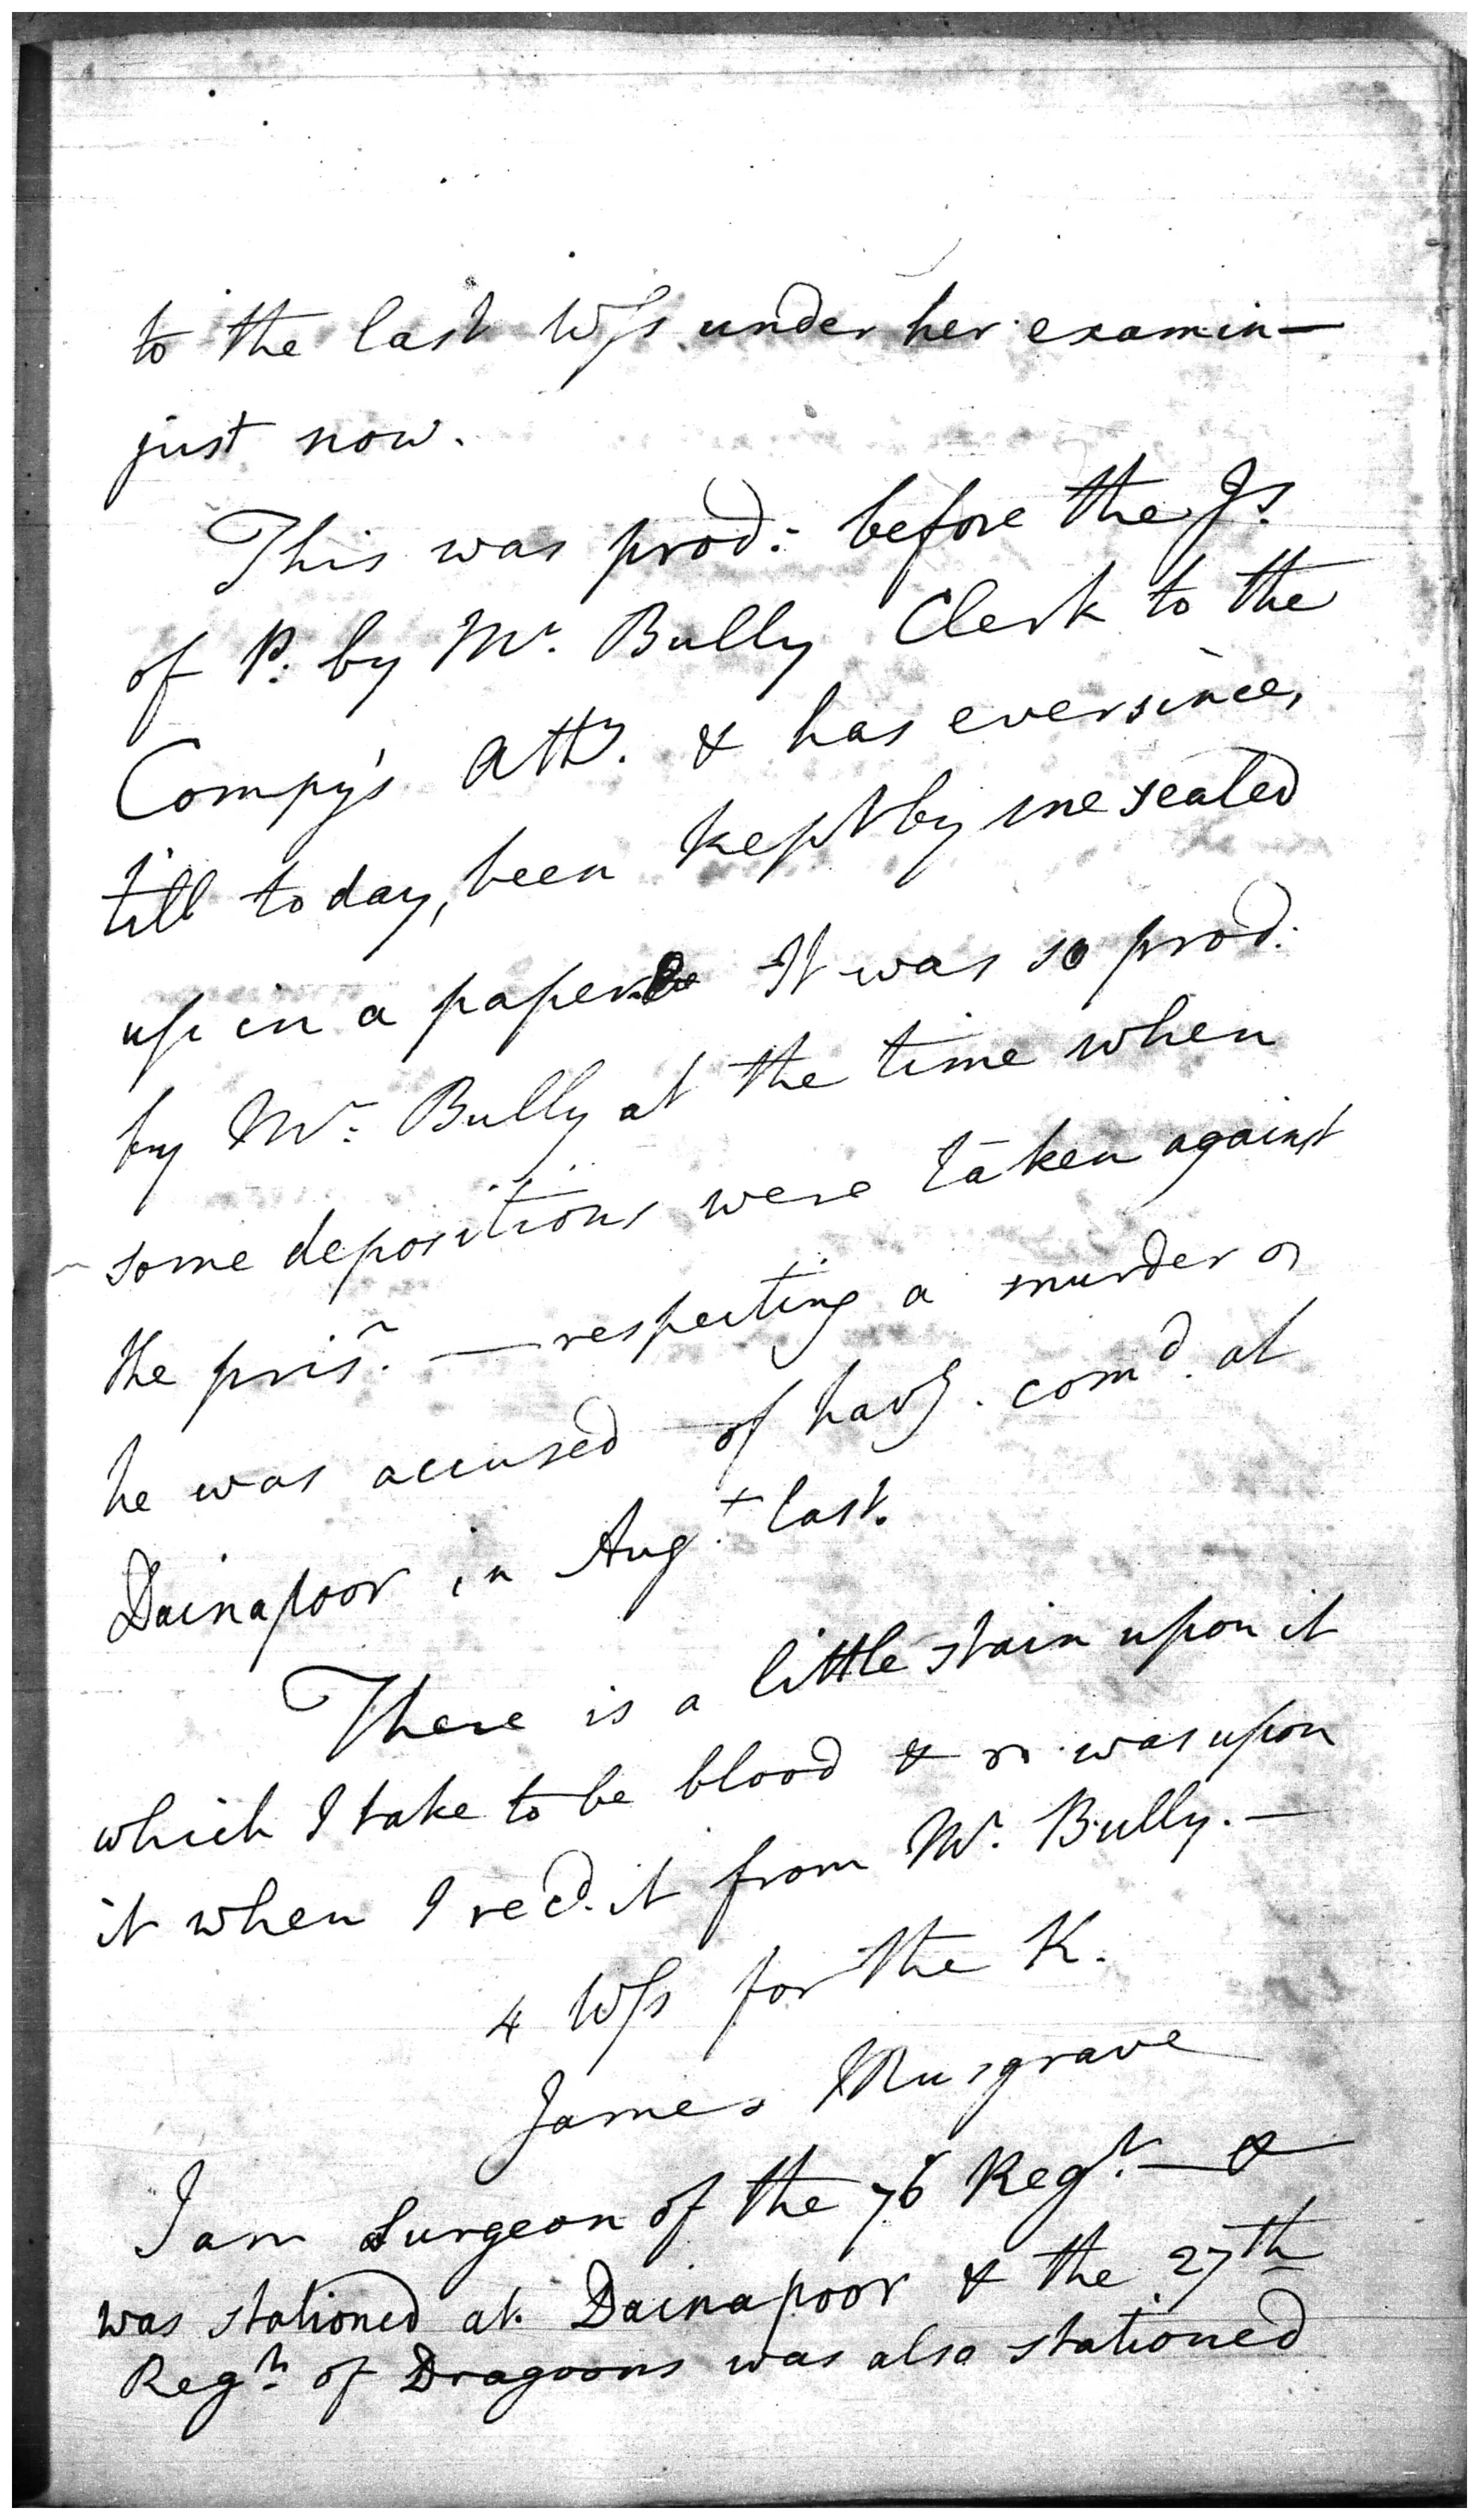 to the last Wss under her examin—
just now.
This was prod: before the Js.
of P: by Mr. Bully Clerk to the
Compy's Atty. & has ever since,
till to day, been kept by me sealed
up in a paper It was so prod:
by Mr: Bully at the time when
some depositions were taken against
the prisr. — respecting a murder
he was accused of havg. comd. at
Dainapoor in Augt. last.
There is a little stain upon it
which I take to be blood & so was upon
it when I recd. it from Mr. Bully. —
4 Wss for the K.
James Musgrave
I am Surgeon of the 76 Regt. — &
was stationed at Dainapoor & the 27th
Regt. of Dragoons was also stationed